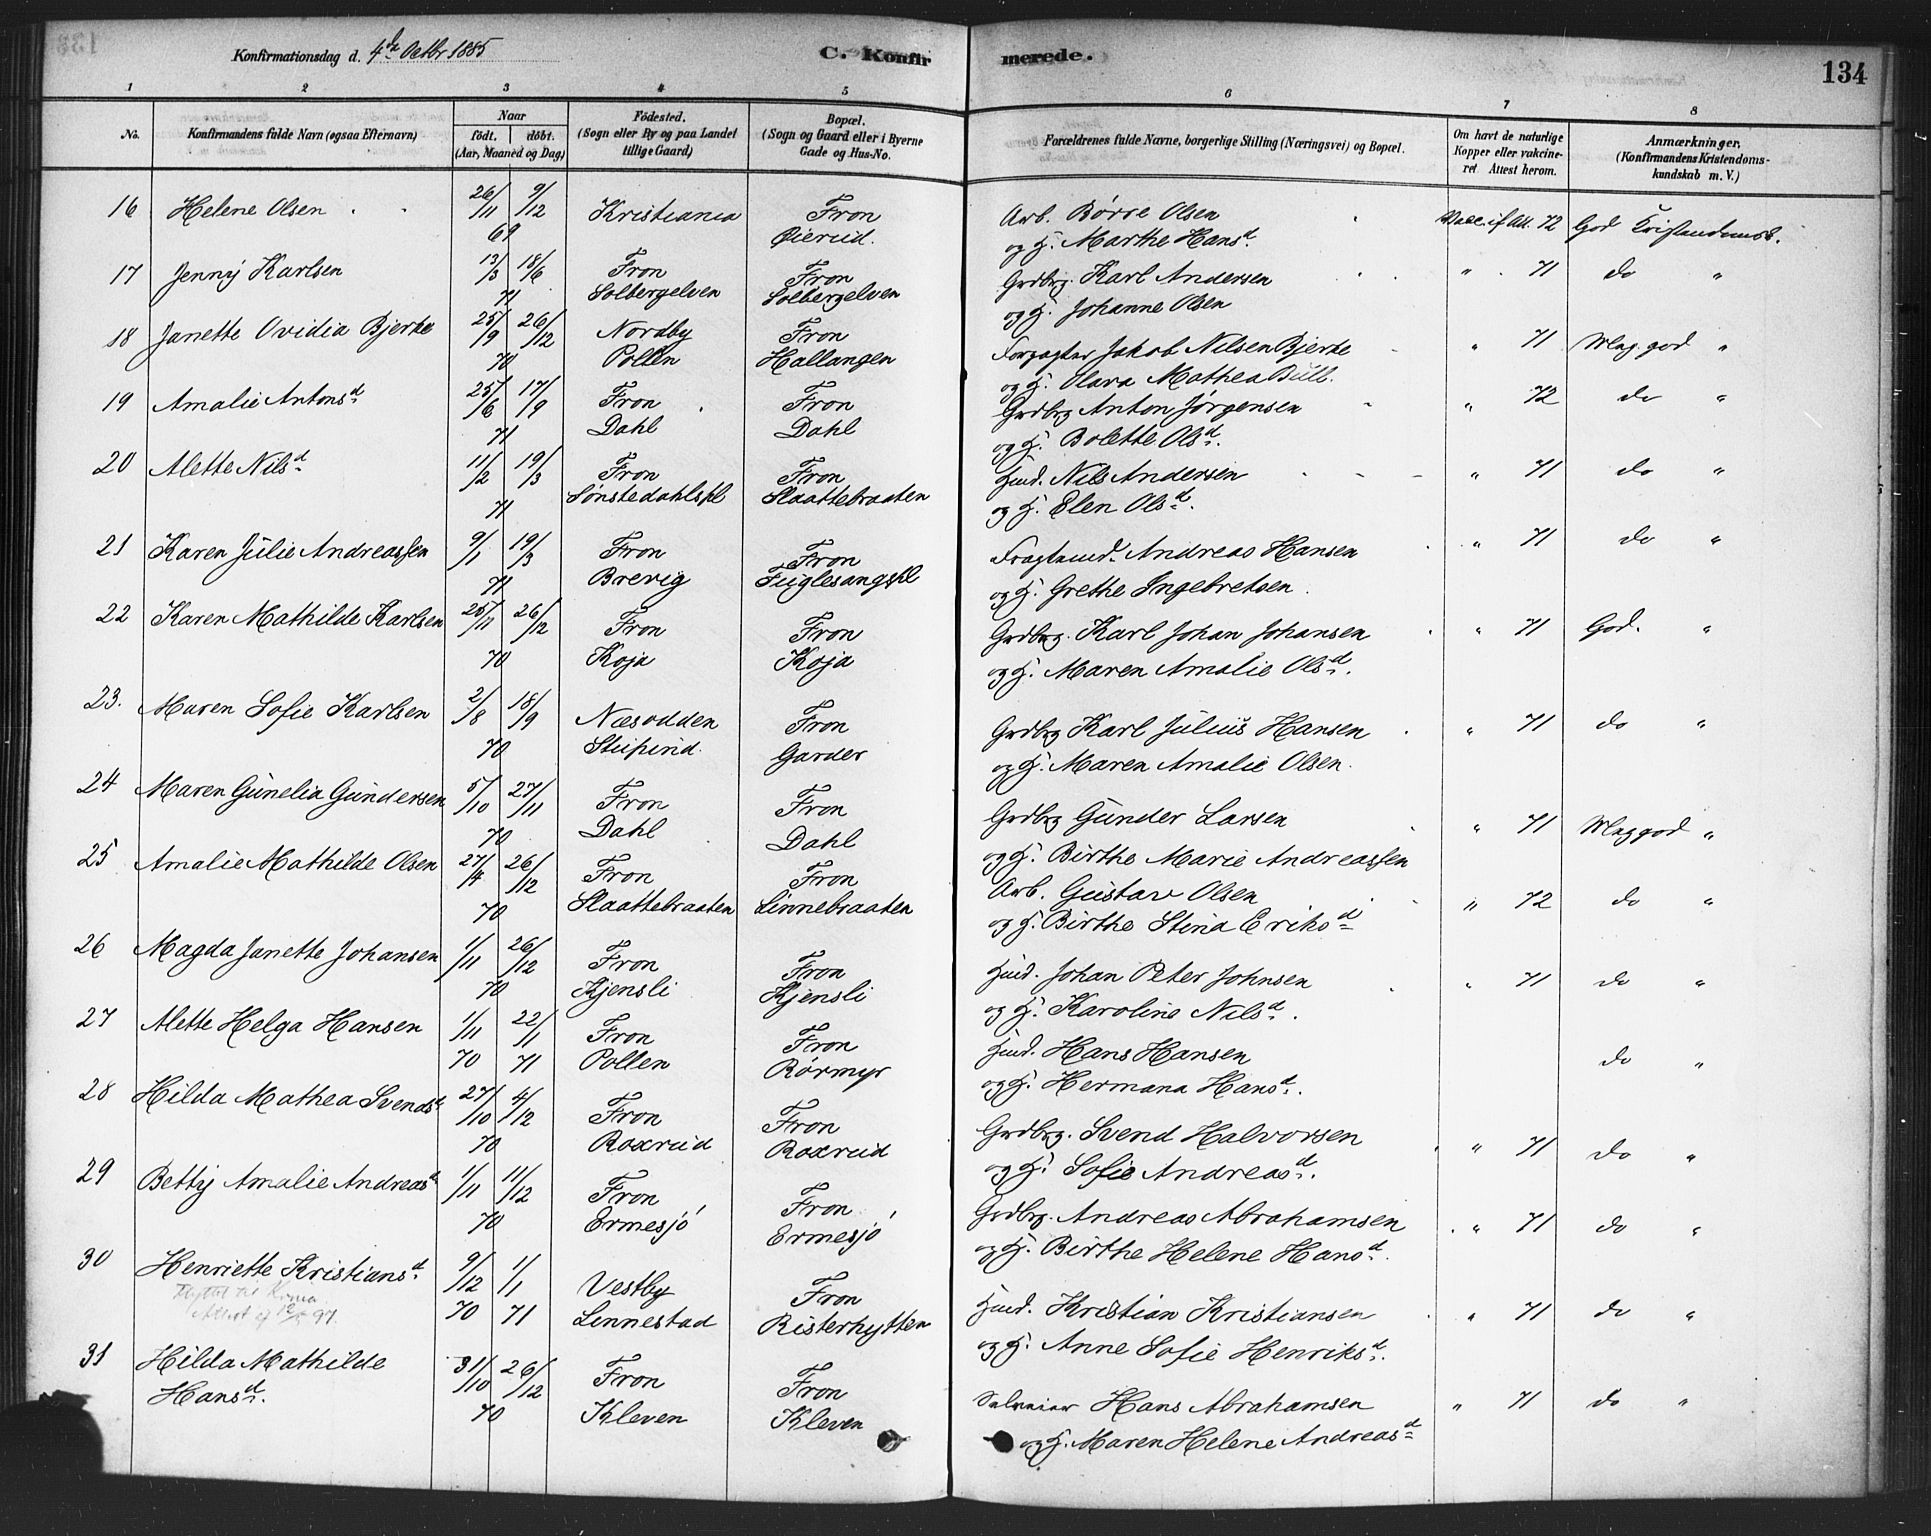 Konfirmationsdag d. 4de Octbr 1885
C. Konfirmerede.
134
1 2 3 4 5 6 7 8
No.
Konfirmandens fulde Navn (ogsaa Efternavn)
Naar
födt. döbt.
(Aar, Maaned og Dag)
Födested.
(Sogn eller By og paa Landet
tillige Gaard)
Bopæl.
(Sogn og Gaard eller i Byerne
Gade og Hus-No.
Forældrenes fulde Navne, borgerlige Stilling (Næringsvei) og Bopæl.
Om havt de naturlige
Kopper eller vakcine-
ret Attest herom.
Anmærkninger.
(Konfirmandens Kristendoms-
kundskab m. V.)
16 Helene Olsen 26/11 9/12 Kristiania Fron Arb. Børre Olsen Vacc. if att. 72 God Kristendomsk.
69 Øierud. og H. Marthe Hansd.
17 Jenny Karlsen 13/3 18/6 Fron Fron Grdbrg. Karl Andersen " 71 do "
71 Solbergelven Solbergelven og H. Johanne Olsen
18 Janette Ovidia Bjerke 25/9 26/12 Nordby Fron Forpagter Jakob Nilsen Bjerke " 71 Meg. god "
70 Pollen Hallangen og H. Olava Mathea Bull.
19 Amalie Antonsd. 25/6 17/9 Fron Fron Grdbrg Anton Jørgensen " 72 do "
71 Dahl Dahl og H. Bolette Olsd.
20 Alette Nilsd. 11/2 19/3 Fron Fron Husmd. Nils Andersen " 71 do "
71 Sønstedahlspl Slaattebraaten og H. Elen Olsd.
21 Karen Julie Andreassen 9/1 19/3 Fron Fron Fragtemd. Andreas Hansen " 71 do "
71 Brevig Fuglesangspl og H. Grethe Ingebretsen.
22 Karen Mathilde Karlsen 25/11 26/12 Fron Fron Grdbrg. Karl Johan Johansen " 71 God. "
70 Koja Koja og H. Maren Amalie Olsd.
23. Maren Sofie Karlsen 2/8 18/9 Næsodden Fron Grdbrg Karl Julius Hansen " 71 do "
70 Garder og H. Maren Amalie Olsen.
24 Maren Gunelia Gundersen 5/10 27/11 Fron Fron Grdbrg Gunder Larsen " 71 Meg god "
70 Dahl Dahl og H. Birthe Marie Andreassen
25 Amalie Mathilde Olsen 27/4 26/12 Fron Fron Arb. Gustav Olsen " 72 do "
70 Slaattebraaten Linnebraaten og H. Birthe Stina Eriksd.
26 Magda Janette Johansen 1/11 26/12 Fron Fron Husmd. Johan Peter Johnsen " 71 do "
70 Kjensli Kjensli og H. Karoline Nilsd.
27 Alette Helga Hansen 1/11 22/1 Fron Fron Husmd. Hans Hansen do "
70 71 Pollen Rørmyr og H. Hermana Hansd.
28 Hilda Mathea Svendsd. 27/10 4/12 Fron Fron Grdbrg. Svend Halvorsen " 71 do "
70 Roxrud Roxrud og H. Sofie Andreasd.
29 Betty Amalie Andreasd. 1/11 11/12 Fron Fron Grdbrg. Andreas Abrahamsen " 71 do "
70 Ermesjø Ermesjø og H. Birthe Helene Hansd.
30 Henriette Kristiansd. 9/12 1/1 Vestby Fron Husmd. Kristian Kristiansen " 71 do "
Flyttet til Krnia.
Attest af 12/5 97.
70 71 Linnestad Risterhytten og H. Anne Sofie Henriksd.
31 Hilda Mathilde 31/10 26/12 Fron Fron Selveier Hans Abrahamsen " 71 do "
Hansd. 70 Kleven Kleven og H. Maren Helene Andreasd.